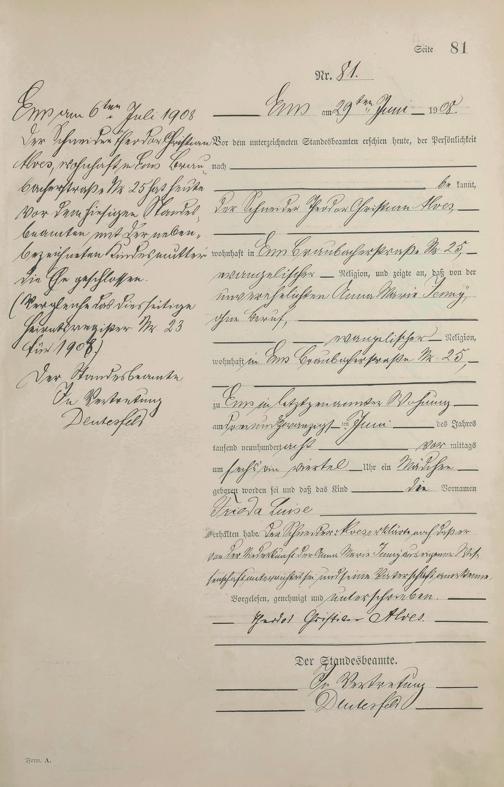 Seite 81
Nr. 81.
Ems am 29ten Juni 1908.
Vor dem unterzeichneten Standesbeamten erschien heute, der Persönlichkeit
nach
be kannt,
der Schneider Theodor Christian Alves
wohnhaft in Ems Braubacherstraße Nr. 25,
evangelischer Religion, und zeigte an, daß von der
unverehelichten Anna Marie
ohne Beruf,
evangelischer Religion,
wohnhaft in Ems Braubacherstraße Nr. 25
zu Ems in letztgenannter Wohnung
am Juni des Jahres
tausend neunhundert acht vor mittags
um sechs ein viertel Uhr ein Mädchen
geboren worden sei und daß das Kind die Vornamen
Frieda Luise
erhalten habe. Der Schneider Alves erklärte noch daß er
von der Niederkunft der Anna Marie aus eigener Wis-
senschaft unterrichtet sei, und seine Vaterschaft anerkenne.
Vorgelesen, genehmigt und unterschrieben.
Theodor Christian Alves
Der Standesbeamte.
In Vertretung
Ems am 6ten Juli 1908
Der Schneider Theodor Christian
Alves, wohnhaft in Ems Brau-
bacherstraße Nr 25 hat heute
vor dem hiesigen Standes-
beamten mit der neben-
bezeichneten Kindesmutter
die Ehe geschlossen.
(Vergleiche das diesseitige
Heiratsregister Nr. 23
für 1908.)
Der Standesbeamte
In Vertretung
Form. A.